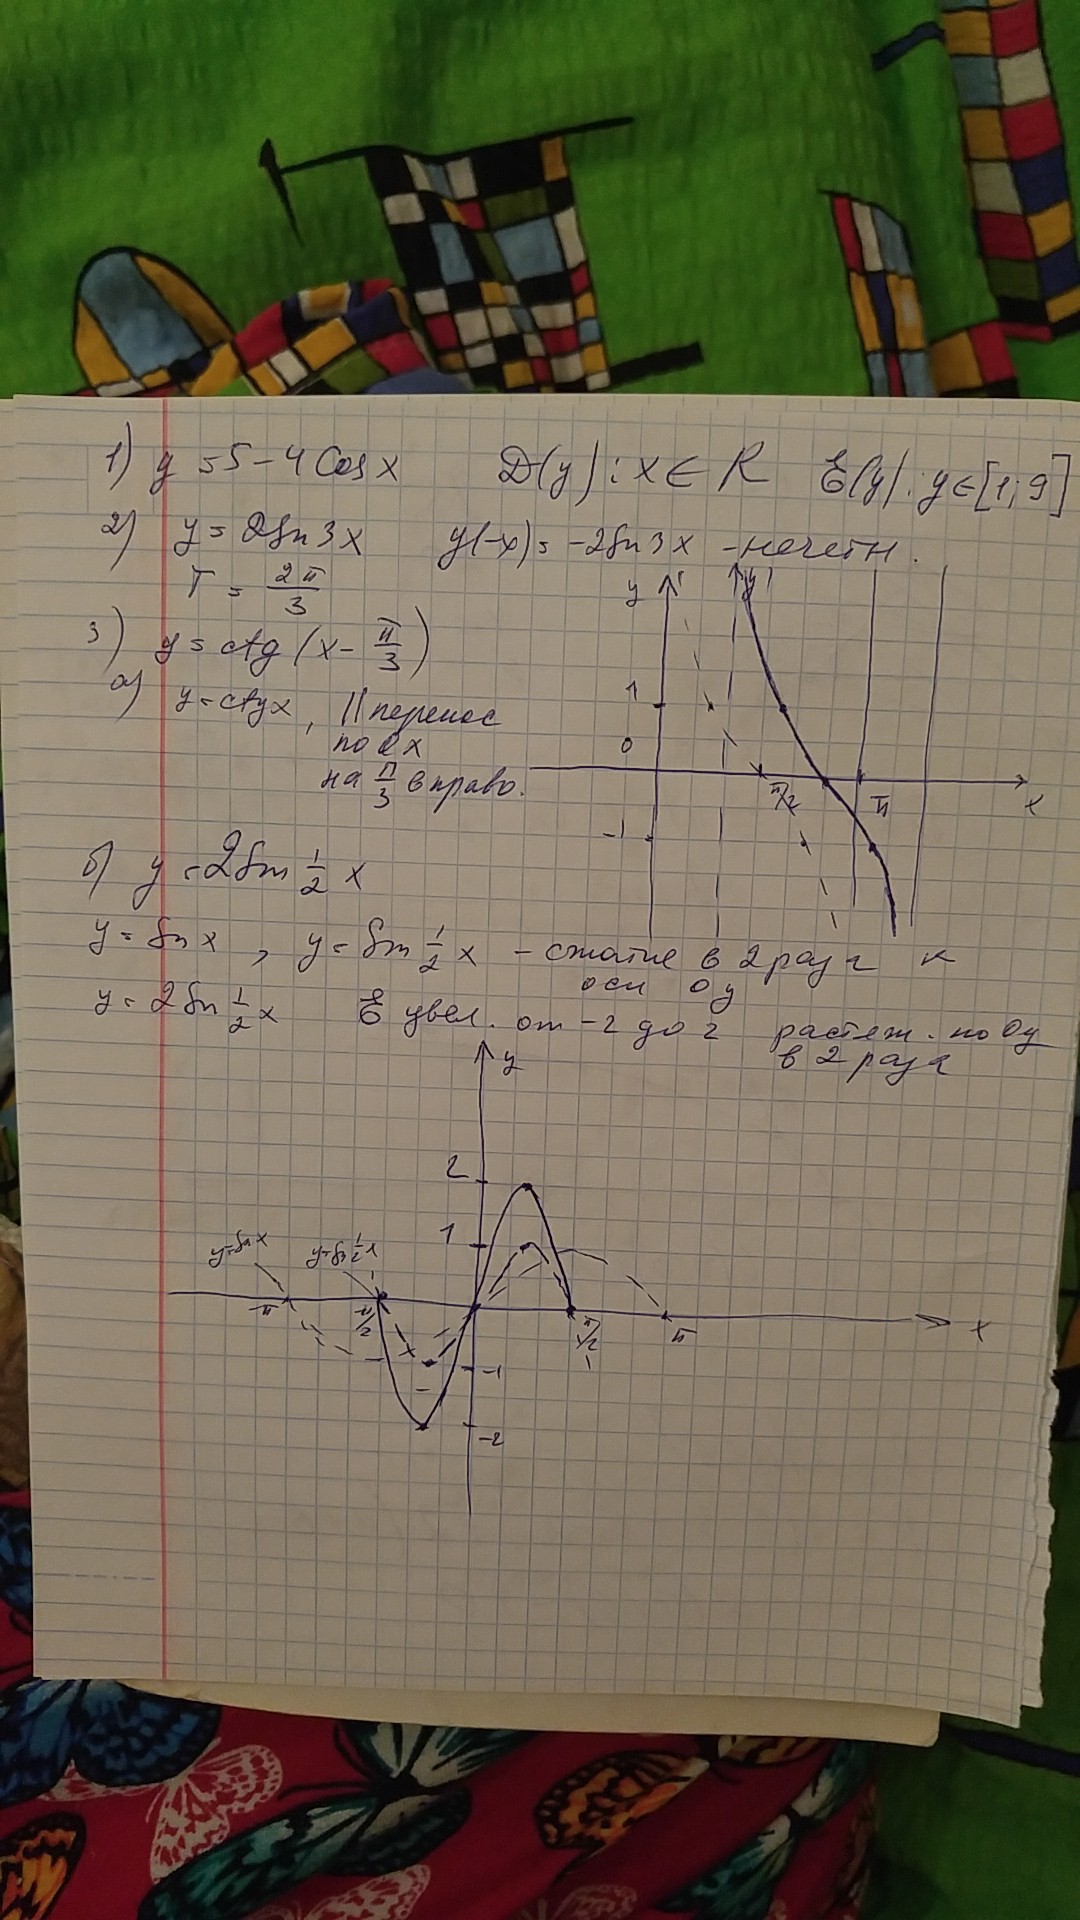 1) y = 5 - 4 Cos x D(y) : x ∈ R E(y) : y ∈ [1; 9]
2) y = 2 sin 3x y(-x) = -2 sin 3x - нечетн.
T = 2π/3
3) y = ctg (x - π/3)
а) y = ctg x, || перенос
по 0x
на π/3 вправо.
y
y'
1
0
π/2
π
x
-1
б) y = 2 sin 1/2 x
y = sin x, y = sin 1/2 x - сжатие в 2 раза к
оси 0y
y = 2 sin 1/2 x E увел. от -2 до 2 растяж. по 0y
в 2 раза
y
2
1
y = sin x y = sin 1/2 x
-π π/2 π/2 π x
-1
-2